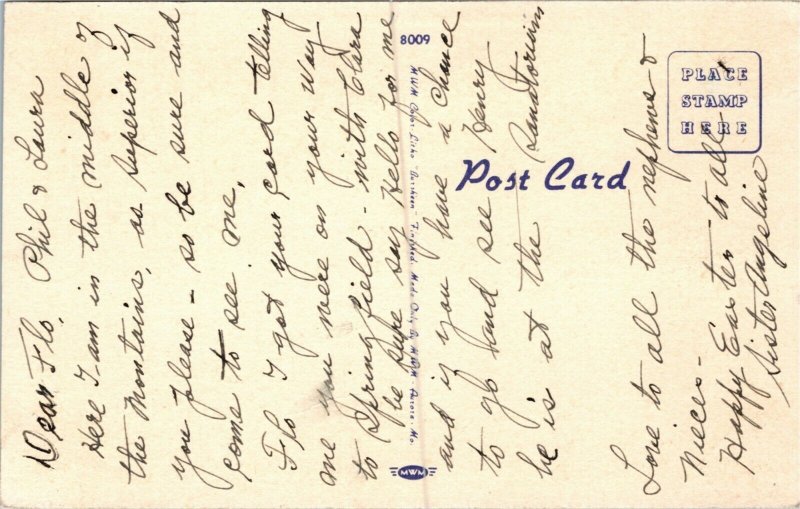 Dear Flo, Phil & Laura
Here I am in the middle of
the Montains, as superior if
you please - so be sure and
come to see me.
Flo I got your card telling
me you were on your way
to Springfield - with Clara
be sure say Hello for me
and if you have a chance
to go and see Henry
he is at the Sanatorium
Love to all the nephews &
Nieces -
Happy Easter to all
Sister Angeline
8009
PLACE
STAMP
HERE
Post Card
MWM Color-Litho - Finished, Made Only By MWM, Aurora, Mo.
MWM